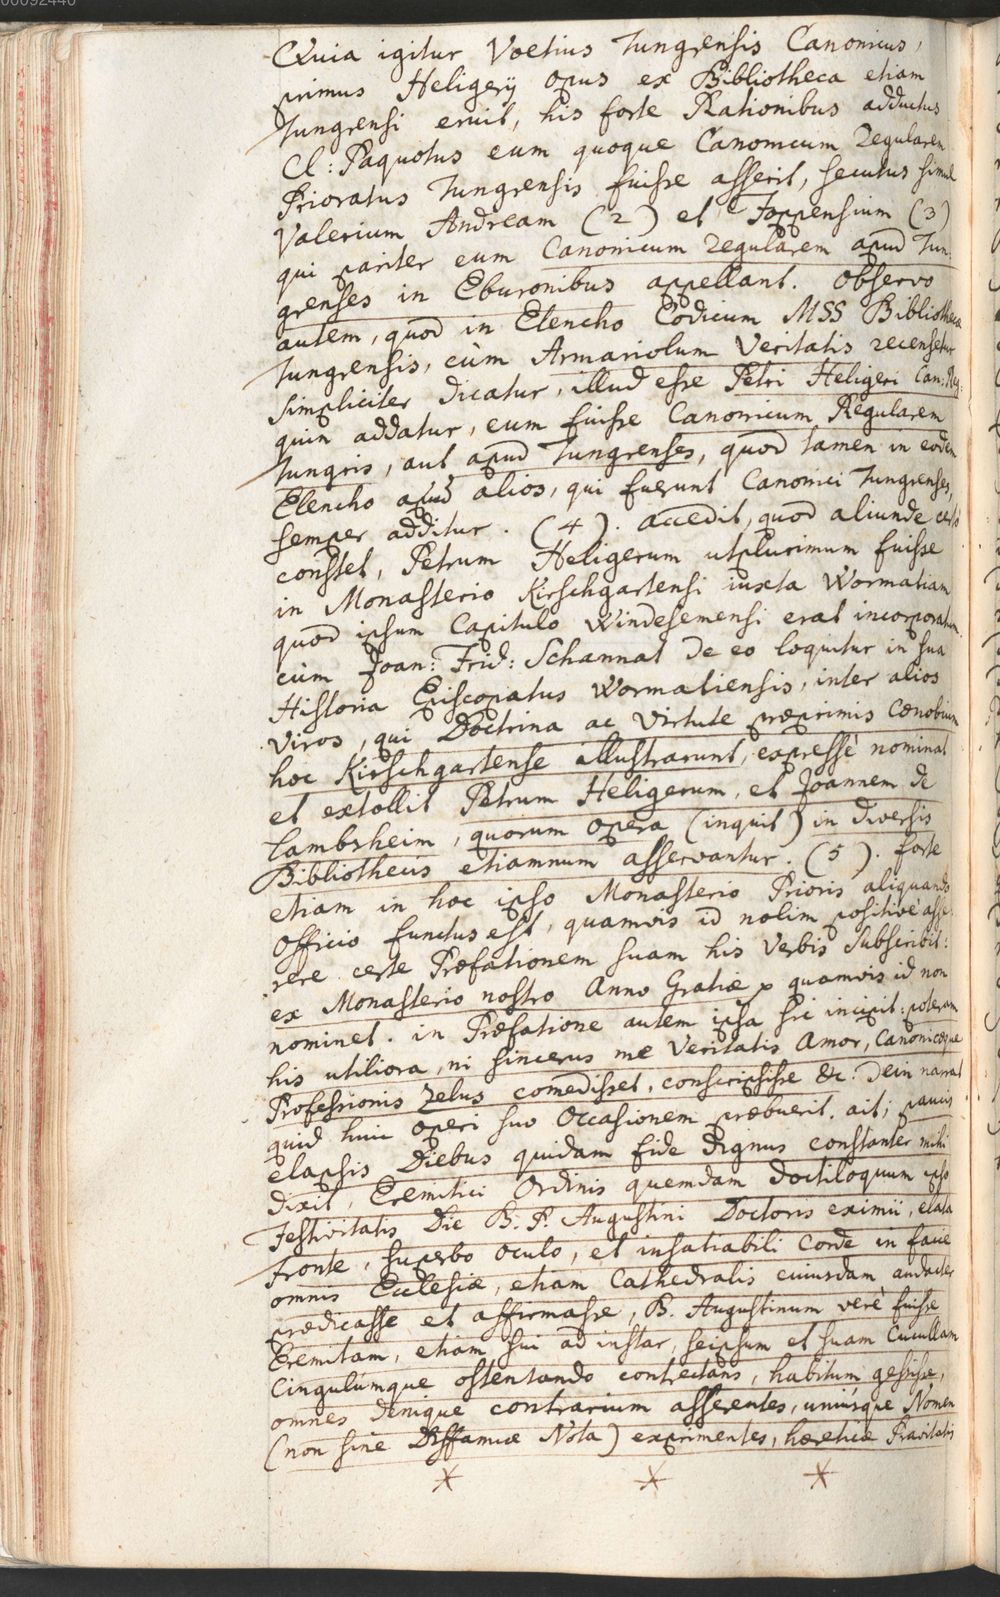 00092440
Quia igitur Voetius Tungrensis Canonicus,
primus Heligerij opus ex Bibliotheca etiam
Tungrensi eruit, his forte Rationibus adductus
Cl: Paquotus eum quoque Canonicum Regularem
Prioratus Tungrensis fuisse asserit, secutus simul
Valerium Andream (2) et Foppensium (3)
qui pariter eum Canonicum Regularem apud Tun-
grenses in Eburonibus appellant. Observo
autem, quod in Elencho Codicum MSS Bibliothecæ
Tungrensis, cùm Armariolum Veritatis recensetur
simpliciter dicatur, illud esse Petri Heligeri Can: Reg:
quin addatur, eum fuisse Canonicum Regularem
Tungris, aut apud Tungrenses, quod tamen in eodem
Elencho apud alios, qui fuerunt Canonici Tungrenses,
semper additur. (4). accedit, quod aliunde certo
constet, Petrum Heligerum utplurimum fuisse
in Monasterio Kirschgartensi iuxta Wormatiam
quod ipsum Capitulo Windesemensi erat incorporatum.
cùm Joan: Frid: Schannat de eo loquitur in sua
Historia Episcopatus Wormatiensis, inter alios
Viros, qui Doctrina ac Virtute præprimis Cœnobium
hoc Kirschgartense illustrarunt, expressè nominat
et extollit Petrum Heligerum, et Joannem de
Lambsheim, quorum opera (inquit) in diversis
Bibliothecis etiamnum asservantur. (5). forte
etiam in hoc ipso Monasterio Prioris aliquando
Officio functus est, quamvis id nolim positivè asse-
rere. certe Præfationem suam his Verbis subscribit:
ex Monasterio nostro Anno Gratiæ &. quamvis id non
nominet. in Præfatione autem ipsa sic incipit: poteram
his utiliora, ni sincerus me Veritatis Amor, Canonicæque
Professionis Zelus comedisset, conscripsisse &c. Dein narrat
quid huic operi suo Occasionem præbuerit. ait; paucis
elapsis Diebus quidam fide dignus constanter mihi
dixit, Eremitici Ordinis quemdam doctiloquum ipso
Festivitatis Die B. P. Augustini Doctoris eximii, elata
Fronte, superbo Oculo, et insatiabili Corde in facie
omnis Ecclesiæ, etiam Cathedralis cuiusdam audacter
prædicasse et affirmasse, B. Augustinum verè fuisse
Eremitam, etiam sui ad instar, seipsum et suam Cucullam
Cingulumque ostentando contrectans, habitum gessisse,
omnes denique contrarium asserentes, uniusque Nomen
(non sine Diffamiæ Nota) exprimentes, hæreticæ Pravitatis